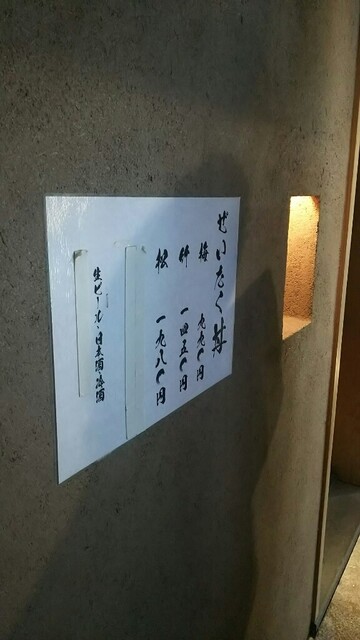 ぜいたく丼
梅 九九〇円
竹 一四五〇円
松 一九八〇円
生ビール・日本酒・冷酒